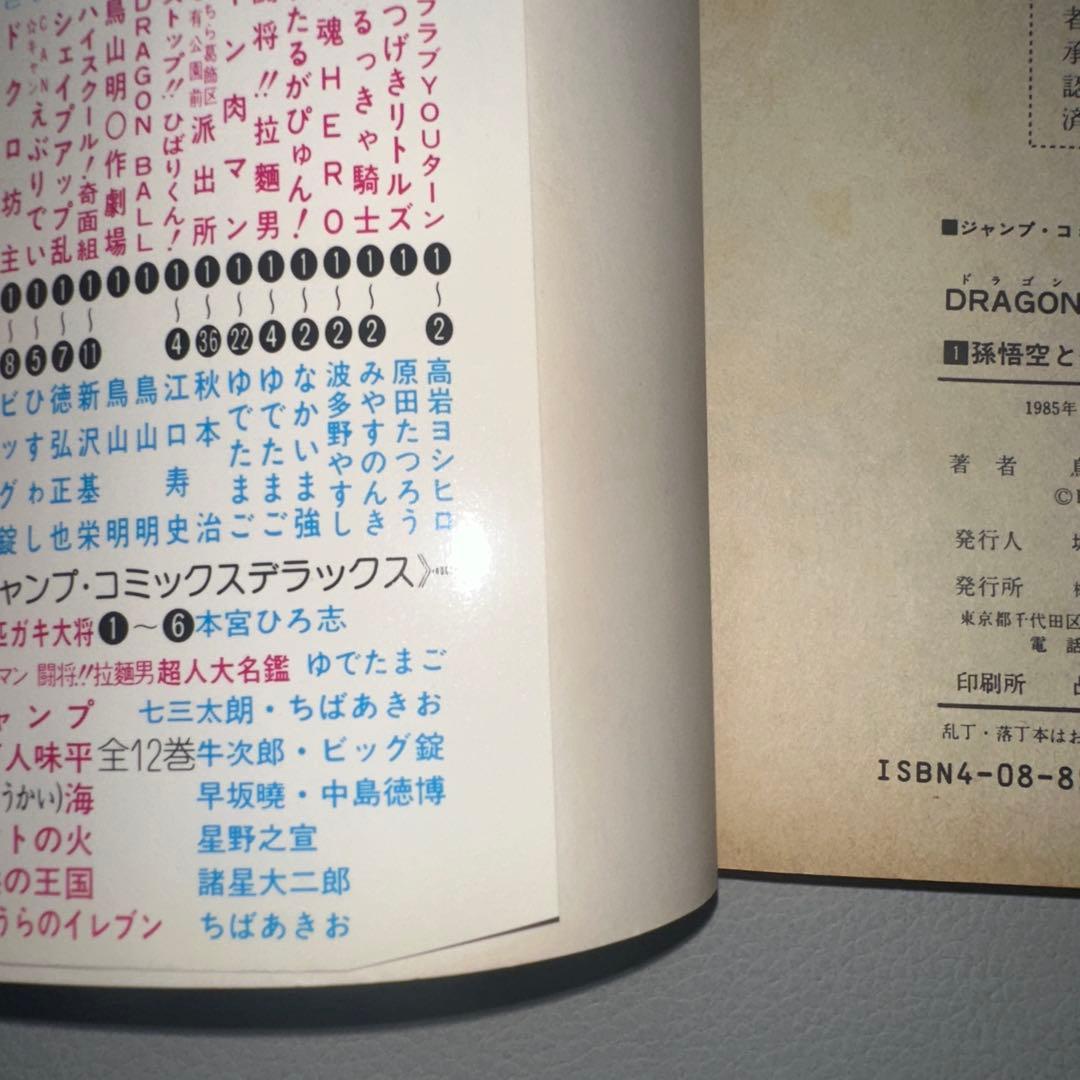 ラブYOUターン ❶〜❷ 高岩ヨシヒロ
つげきリトルズ ❶ 原田たつろう
るっきゃ騎士 ❶〜❷ みやすのんき
魂HERO ❶〜❷ 波多野やすし
たるがぴゅん! ❶〜❷ なかいま強
将!!拉麵男 ❶〜❹ ゆでたまご
ン肉マン ❶〜㉒ ゆでたまご
ちら葛飾区有公園前派出所 ❶〜㊱ 秋本治
ストップ!!ひばりくん! ❶〜❹ 江口寿史
DRAGON BALL ❶ 鳥山明
鳥山明〇作劇場 ❶ 鳥山明
ハイスクール!奇面組 ❶〜⓫ 新沢基栄
シェイプアップ乱 ❶〜❼ 徳弘正也
CAN☆キャンえぶりでい ❶〜❺ ひすわし
ドクロ坊主 ❶〜❽ ビッグ錠
ャンプ・コミックスデラックス》
匹ガキ大将❶〜❻本宮ひろ志
マン 闘将!!拉麵男超人大名鑑 ゆでたまご
ャンプ 七三太朗・ちばあきお
人味平全12巻牛次郎・ビッグ錠
うかい)海 早坂暁・中島徳博
トの火 星野之宣
の王国 諸星大二郎
うらのイレブン ちばあきお
者承認済
■ジャンプ・コ
ドラゴン
DRAGON
1孫悟空と
1985年
著者
©
発行人
発行所
東京都千代田区
電話
印刷所
乱丁・落丁本はお
ISBN4-08-8